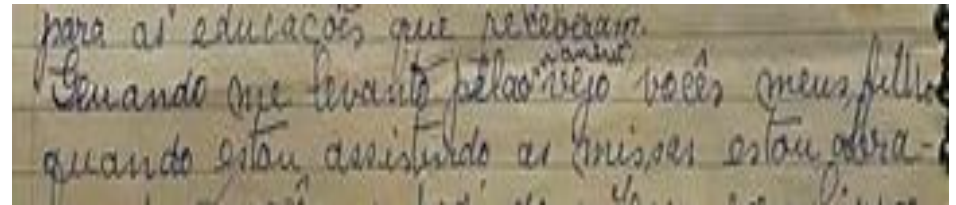 para as educações que receberam.
Quando me levanto pelas manhã vejo vocês meus filh
quando estou assistindo as misses estou